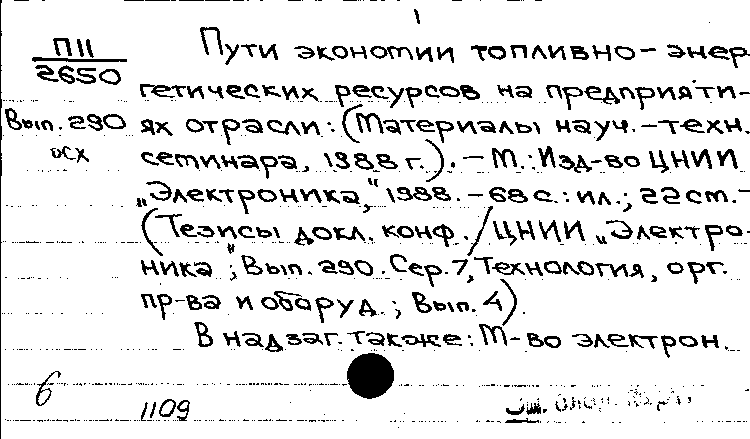 1
П11
2650
Вып. 290
осх
Пути экономии топливно-энер
гетических ресурсов на предприяти-
ях отрасли: (Материалы науч.-техн.
семинара, 1988 г.). - М.: Изд-во ЦНИИ
„Электроника,“ 1988. - 68 с.: ил.; 22 см. -
(Тезисы докл. конф. / ЦНИИ „Электро-
ника“; Вып. 290. Сер. 7, Технология, орг.
пр-ва и оборуд.; Вып. 4).
В надзаг. также: М-во электрон.
6
1109